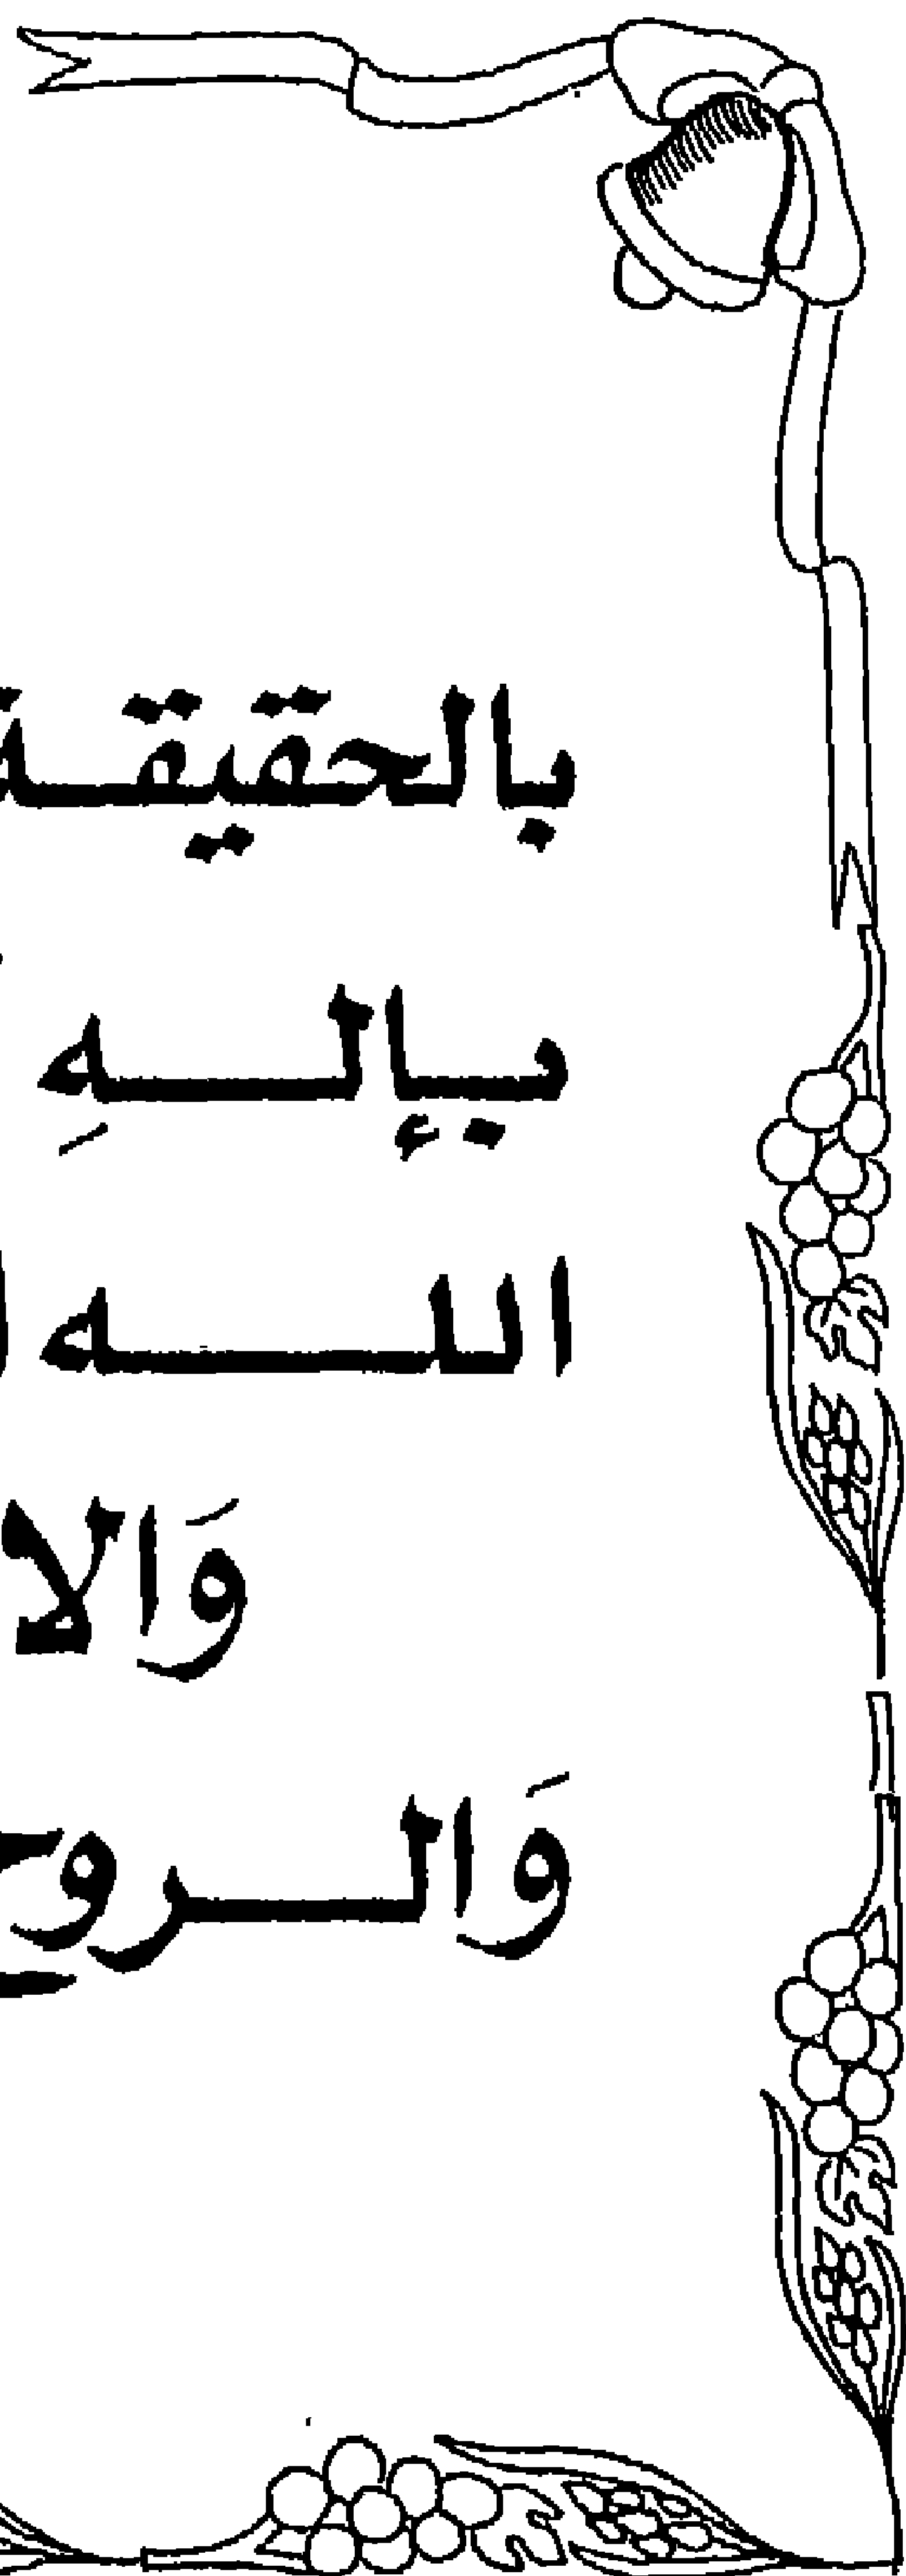 بالحقيقة
بإلهِ
الله
وَالروح